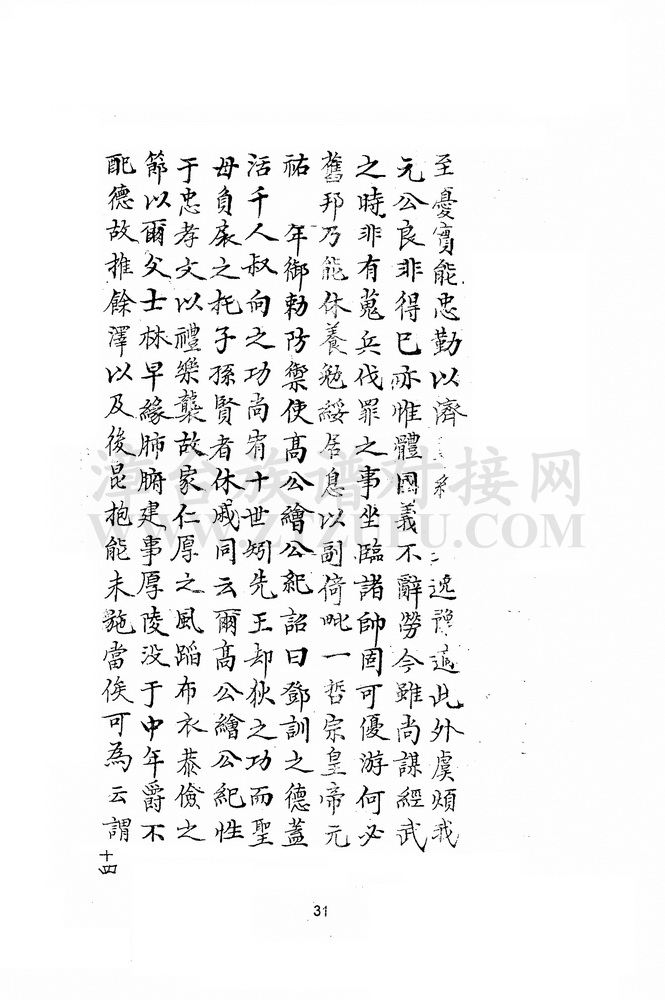 至憂實能忠勤以濟 逸豫適此外虞煩我
元公良非得已亦惟體國義不辭勞今雖尚謀經武
之時非有蒐兵伐罪之事坐臨諸帥固可優游何必
舊邦乃能休養勉綏居息以副倚毗一哲宗皇帝元
祐 年御勅防禦使髙公繪公紀詔曰鄧訓之德蓋
活千人叔向之功尚宥十世矧先王却狄之功而聖
母負扆之托子孫賢者休戚同云爾髙公繪公紀性
于忠孝文以禮樂襲故家仁厚之風蹈布衣恭儉之
節以爾父士林早緣肺腑建事厚陵没于中年爵不
配德故推餘澤以及後昆抱能未施當俟可為云謂
十四
31
漳台族谱对接网
WWW.ZTZUPU.COM